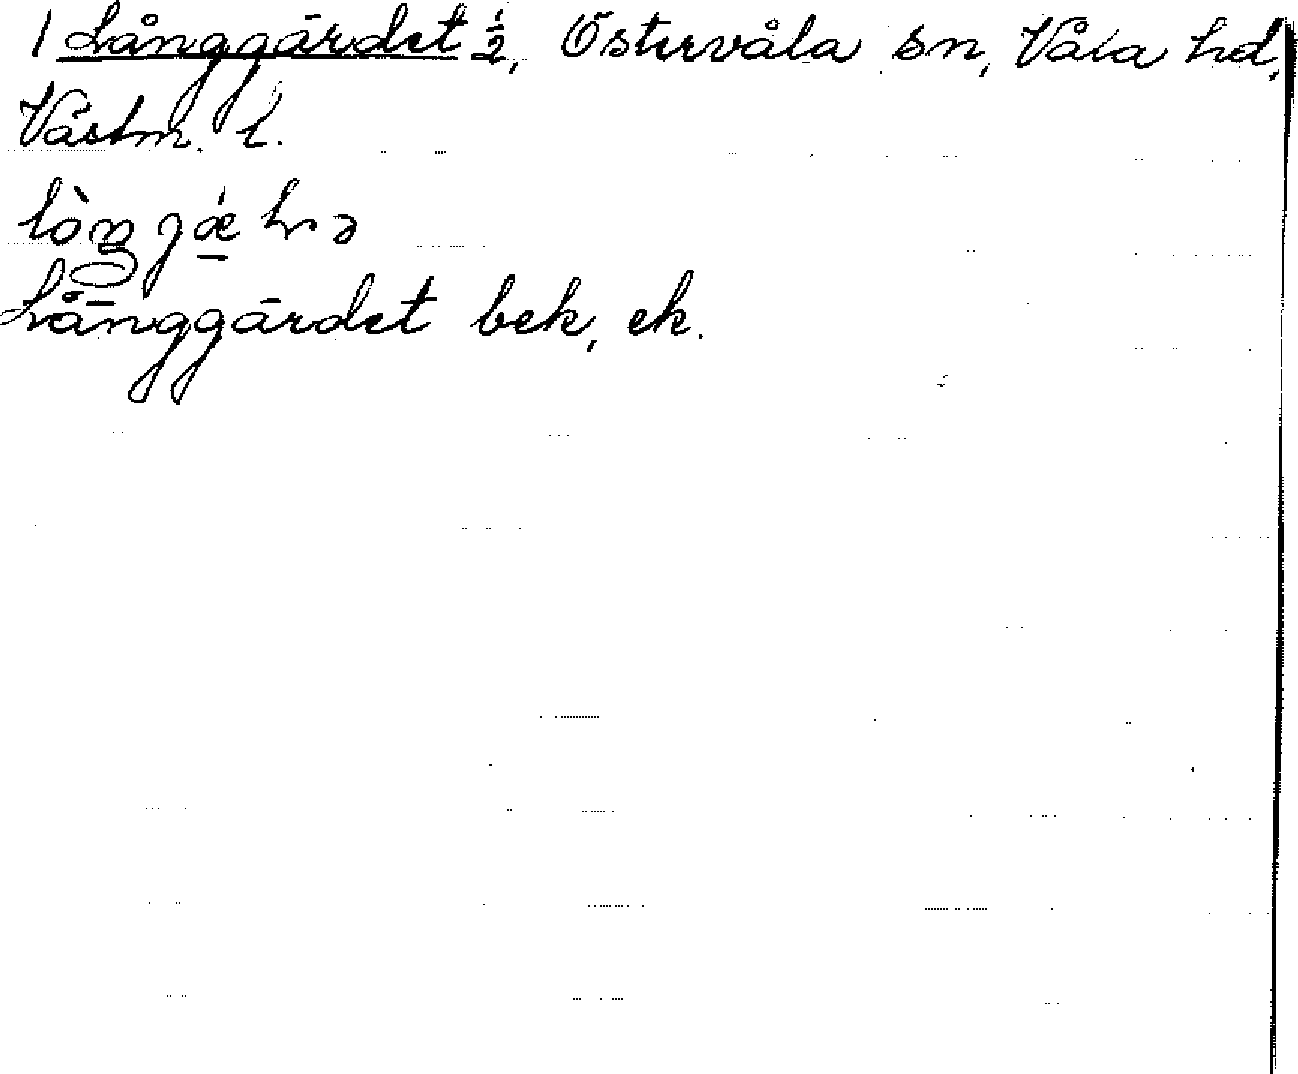 1 Långgärdet 1/2, Östervåla sn, Våla hd,
Västm. l.
Långgärdet bek, ek.